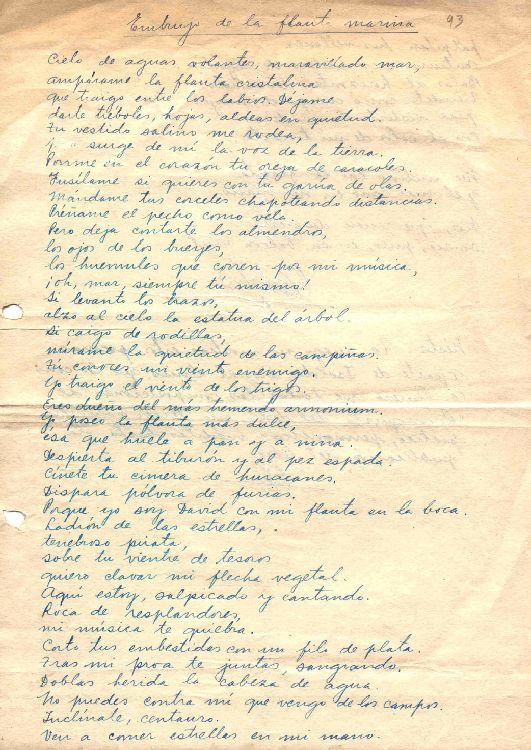 Embrujo de la flauta marina 93
Cielo de aguas volantes, maravillado mar,
ampárame la flauta cristalina
que traigo entre los labios. Déjame
darte tréboles, hojas, aldeas en quietud.
Tu vestido salino me rodea,
y surge de mí la voz de la tierra.
Ponme en el corazón tu oreja de caracoles.
Fusílame si quieres con tu garra de olas.
Mándame tus corceles chapoteando distancias.
Préñame el pecho como vela.
Pero deja contarte los almendros,
los ojos de los bueyes,
los huemules que corren por mi música,
¡oh, mar, siempre tú mismo!
Si levanto los brazos,
alzo al cielo la estatua del árbol.
Si caigo de rodillas,
mírame la quietud de las campiñas.
Tú conoces mi viento enemigo.
Yo traigo el viento de los trigos.
Eres dueño del más tremendo armonium.
Yo poseo la flauta más dulce,
esa que huele a pan y a niña.
Despierta al tiburón y al pez espada.
Cíñete tu cimera de huracanes.
Dispara pólvora de furias.
Porque yo soy David con mi flauta en la boca.
Ladrón de las estrellas,
tenebroso pirata,
sobre tu vientre de tesoros
quiero clavar mi flecha vegetal.
Aquí estoy, salpicado y cantando.
Roca de resplandores,
mi música te quiebra.
Corto tus embestidas con un filo de plata.
Tras mi proa te juntas, sangrando.
Doblas herida la cabeza de agua.
No puedes contra mí que vengo de los campos.
Inclínate, centauro.
Ven a comer estrellas en mi mano.